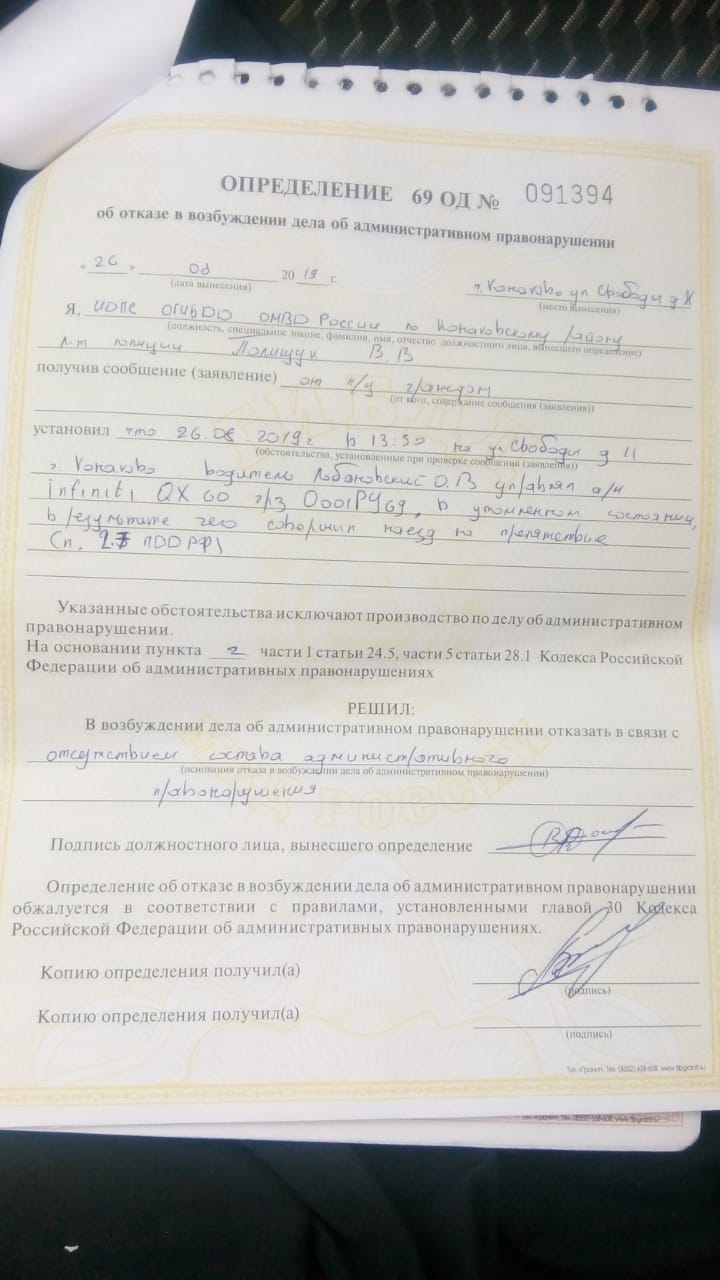 ОПРЕДЕЛЕНИЕ 69 ОД № 091394
об отказе в возбуждении дела об административном правонарушении
« 26 » 08 20 19 г. г. Конаково ул Свободы д
(дата вынесения) (место вынесения)
Я, ИДПС ОГИБДД ОМВД России по Конаковскому району
(должность, специальное звание, фамилия, имя, отчество должностного лица, вынесшего определение)
л-т полиции Полищук В. В
получив сообщение (заявление) от
(от кого, содержание сообщения (заявления))
установил что 26.08.2019г в 13:50 на ул Свободы д
(обстоятельства, установленные при проверке сообщения (заявления))
г. Конаково водитель Лобановский О.В управлял а/м
infiniti QX 60 г/з О001РУ69, в утомленном состоянии,
в результате чего совершил наезд на препятствие
(п. 2.7 ПДД РФ)
Указанные обстоятельства исключают производство по делу об административном
правонарушении.
На основании пункта 2 части 1 статьи 24.5, части 5 статьи 28.1 Кодекса Российской
Федерации об административных правонарушениях
РЕШИЛ:
В возбуждении дела об административном правонарушении отказать в связи с
отсутствием состава административного
(основания отказа в возбуждении дела об административном правонарушении)
правонарушения
Подпись должностного лица, вынесшего определение
Определение об отказе в возбуждении дела об административном правонарушении
обжалуется в соответствии с правилами, установленными главой 30 Кодекса
Российской Федерации об административных правонарушениях.
Копию определения получил(а)
(подпись)
Копию определения получил(а)
(подпись)
Тип. «Гранит». Тел. (8352) 638-608. www.tipgranit.ru